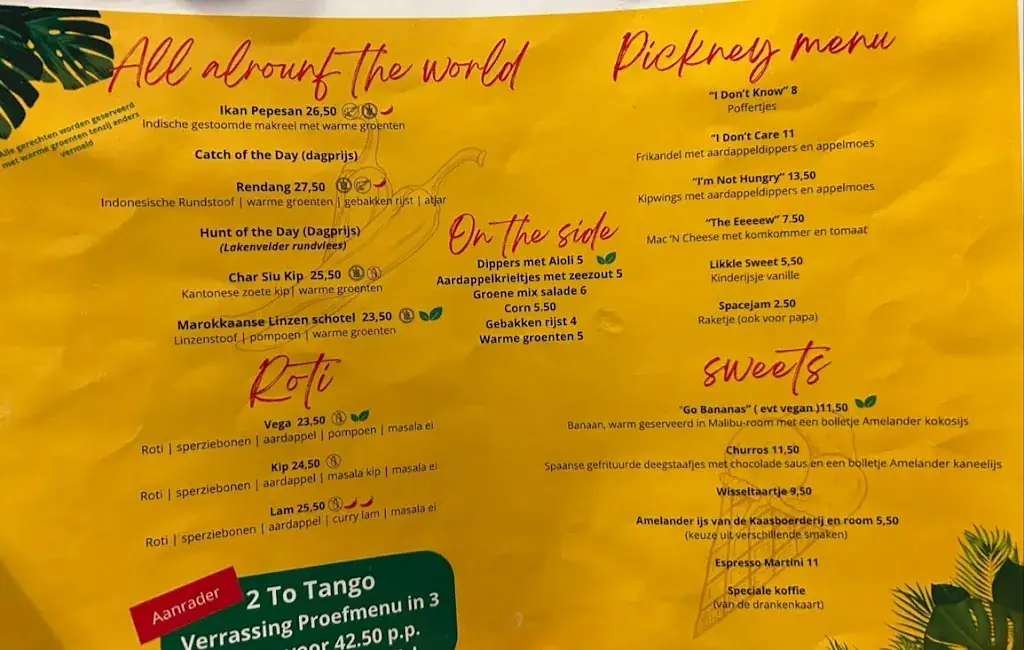 All alrounf the world
Alle gerechten worden geserveerd
met warme groenten tenzij anders
vermeld
Ikan Pepesan 26,50
Indische gestoomde makreel met warme groenten
Catch of the Day (dagprijs)
Rendang 27,50
Indonesische Rundstoof | warme groenten | gebakken rijst | atjar
Hunt of the Day (Dagprijs)
(Lakenvelder rundvlees)
Char Siu Kip 25,50
Kantonese zoete kip| warme groenten
Marokkaanse Linzen schotel 23,50
Linzenstoof | pompoen | warme groenten
Roti
Vega 23,50
Roti | sperziebonen | aardappel | pompoen | masala ei
Kip 24,50
Roti | sperziebonen | aardappel | masala kip | masala ei
Lam 25,50
Roti | sperziebonen | aardappel | curry lam | masala ei
Aanrader
2 To Tango
Verrassing Proefmenu in 3
voor 42.50 p.p.
On the side
Dippers met Aioli 5
Aardappelkrieltjes met zeezout 5
Groene mix salade 6
Corn 5.50
Gebakken rijst 4
Warme groenten 5
Pickney menu
“I Don’t Know” 8
Poffertjes
"I Don't Care 11
Frikandel met aardappeldippers en appelmoes
“I’m Not Hungry” 13,50
Kipwings met aardappeldippers en appelmoes
“The Eeeeew” 7.50
Mac 'N Cheese met komkommer en tomaat
Likkle Sweet 5,50
Kinderijsje vanille
Spacejam 2.50
Raketje (ook voor papa)
sweets
"Go Bananas” ( evt vegan )11,50
Banaan, warm geserveerd in Malibu-room met een bolletje Amelander kokosijs
Churros 11,50
Spaanse gefrituurde deegstaafjes met chocolade saus en een bolletje Amelander kaneelijs
Wisseltaartje 9,50
Amelander ijs van de Kaasboerderij en room 5,50
(keuze uit verschillende smaken)
Espresso Martini 11
Speciale koffie
(van de drankenkaart)